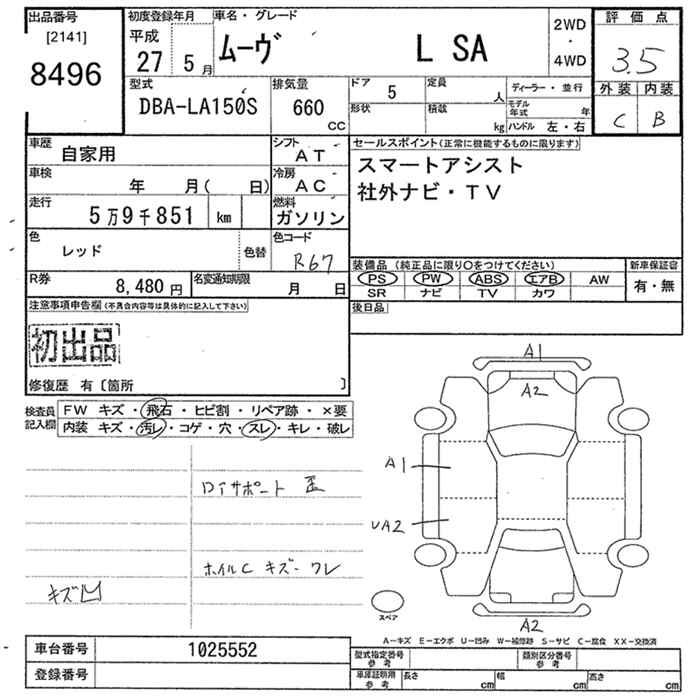 出品番号 初度登録年月 車名・グレード 2WD 評価点
[2141] 平成
8496 27 5月 ムーヴ L SA ・ 4WD 3.5
型式 排気量 ドア 5 定員 人 ディーラー・並行 外装 内装
DBA-LA150S 660 CC 形状 積載 kg モデル年式 年 C B
ハンドル 左・右
車歴 自家用 シフト AT セールスポイント(正常に機能するものに限ります)
車検 年 月( 日) 冷房 AC スマートアシスト
走行 5万9千851 km 燃料 ガソリン 社外ナビ・TV
色 レッド 色替 色コード R67
装備品 (純正品に限り○をつけてください) 新車保証書
R券 8,480円 名変通知期限 月 日 PS PW ABS エアB AW 有・無
SR ナビ TV カワ
注意事項申告欄(不具合内容等は具体的に記入して下さい) 後日品
初出品
修復歴 有〔箇所 〕
検査員記入欄 FW キズ・飛石・ヒビ割・リペア跡・×要
内装 キズ・汚レ・コゲ・穴・スレ・キレ・破レ
A1
A2
A1
UA2
A2
スペア
サポート 歪
ホイルC キズ・ワレ
キズ凹
A-キズ E-エクボ U-凹み W-補修跡 S-サビ C-腐食 XX-交換済
車台番号 1025552 型式指定番号 参考 類別区分番号 参考
登録番号 車庫証明用 参考 長さ cm 幅 cm 高さ cm